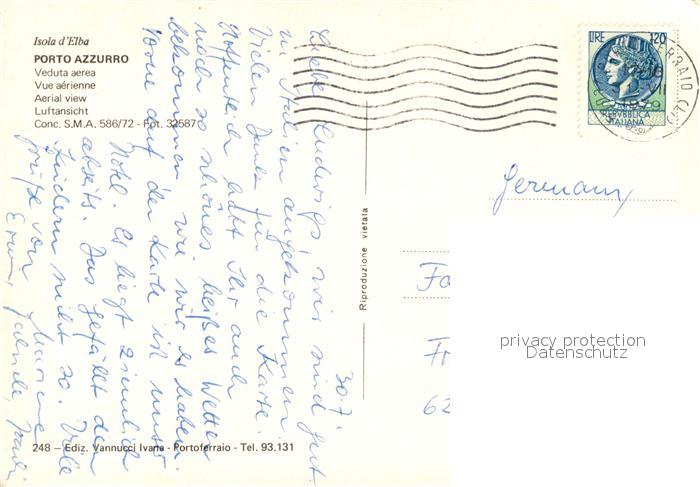 Isola d'Elba
PORTO AZZURRO
Veduta aerea
Vue aérienne
Aerial view
Luftansicht
Conc. S.M.A. 586/72 - Fot. 32587
LIRE 120
REPVBBLICA
ITALIANA
Germany
Riproduzione vietata
Fa
Fr
62
privacy protection
Datenschutz
30.7.
Liebe Ludwigs, wir sind gut
in Italien angekommen
Vielen Dank für die Karte.
Hoffentlich habt Ihr auch
noch so schönes heißes Wetter
bekommen wie wir es haben.
Vorne auf der Karte ist unser
Hotel. Es liegt ziemlich
abseits. Das gefällt den
Kindern nicht so. Viele
Grüße von
248 - Ediz. Vannucci Ivana - Portoferraio - Tel. 93.131